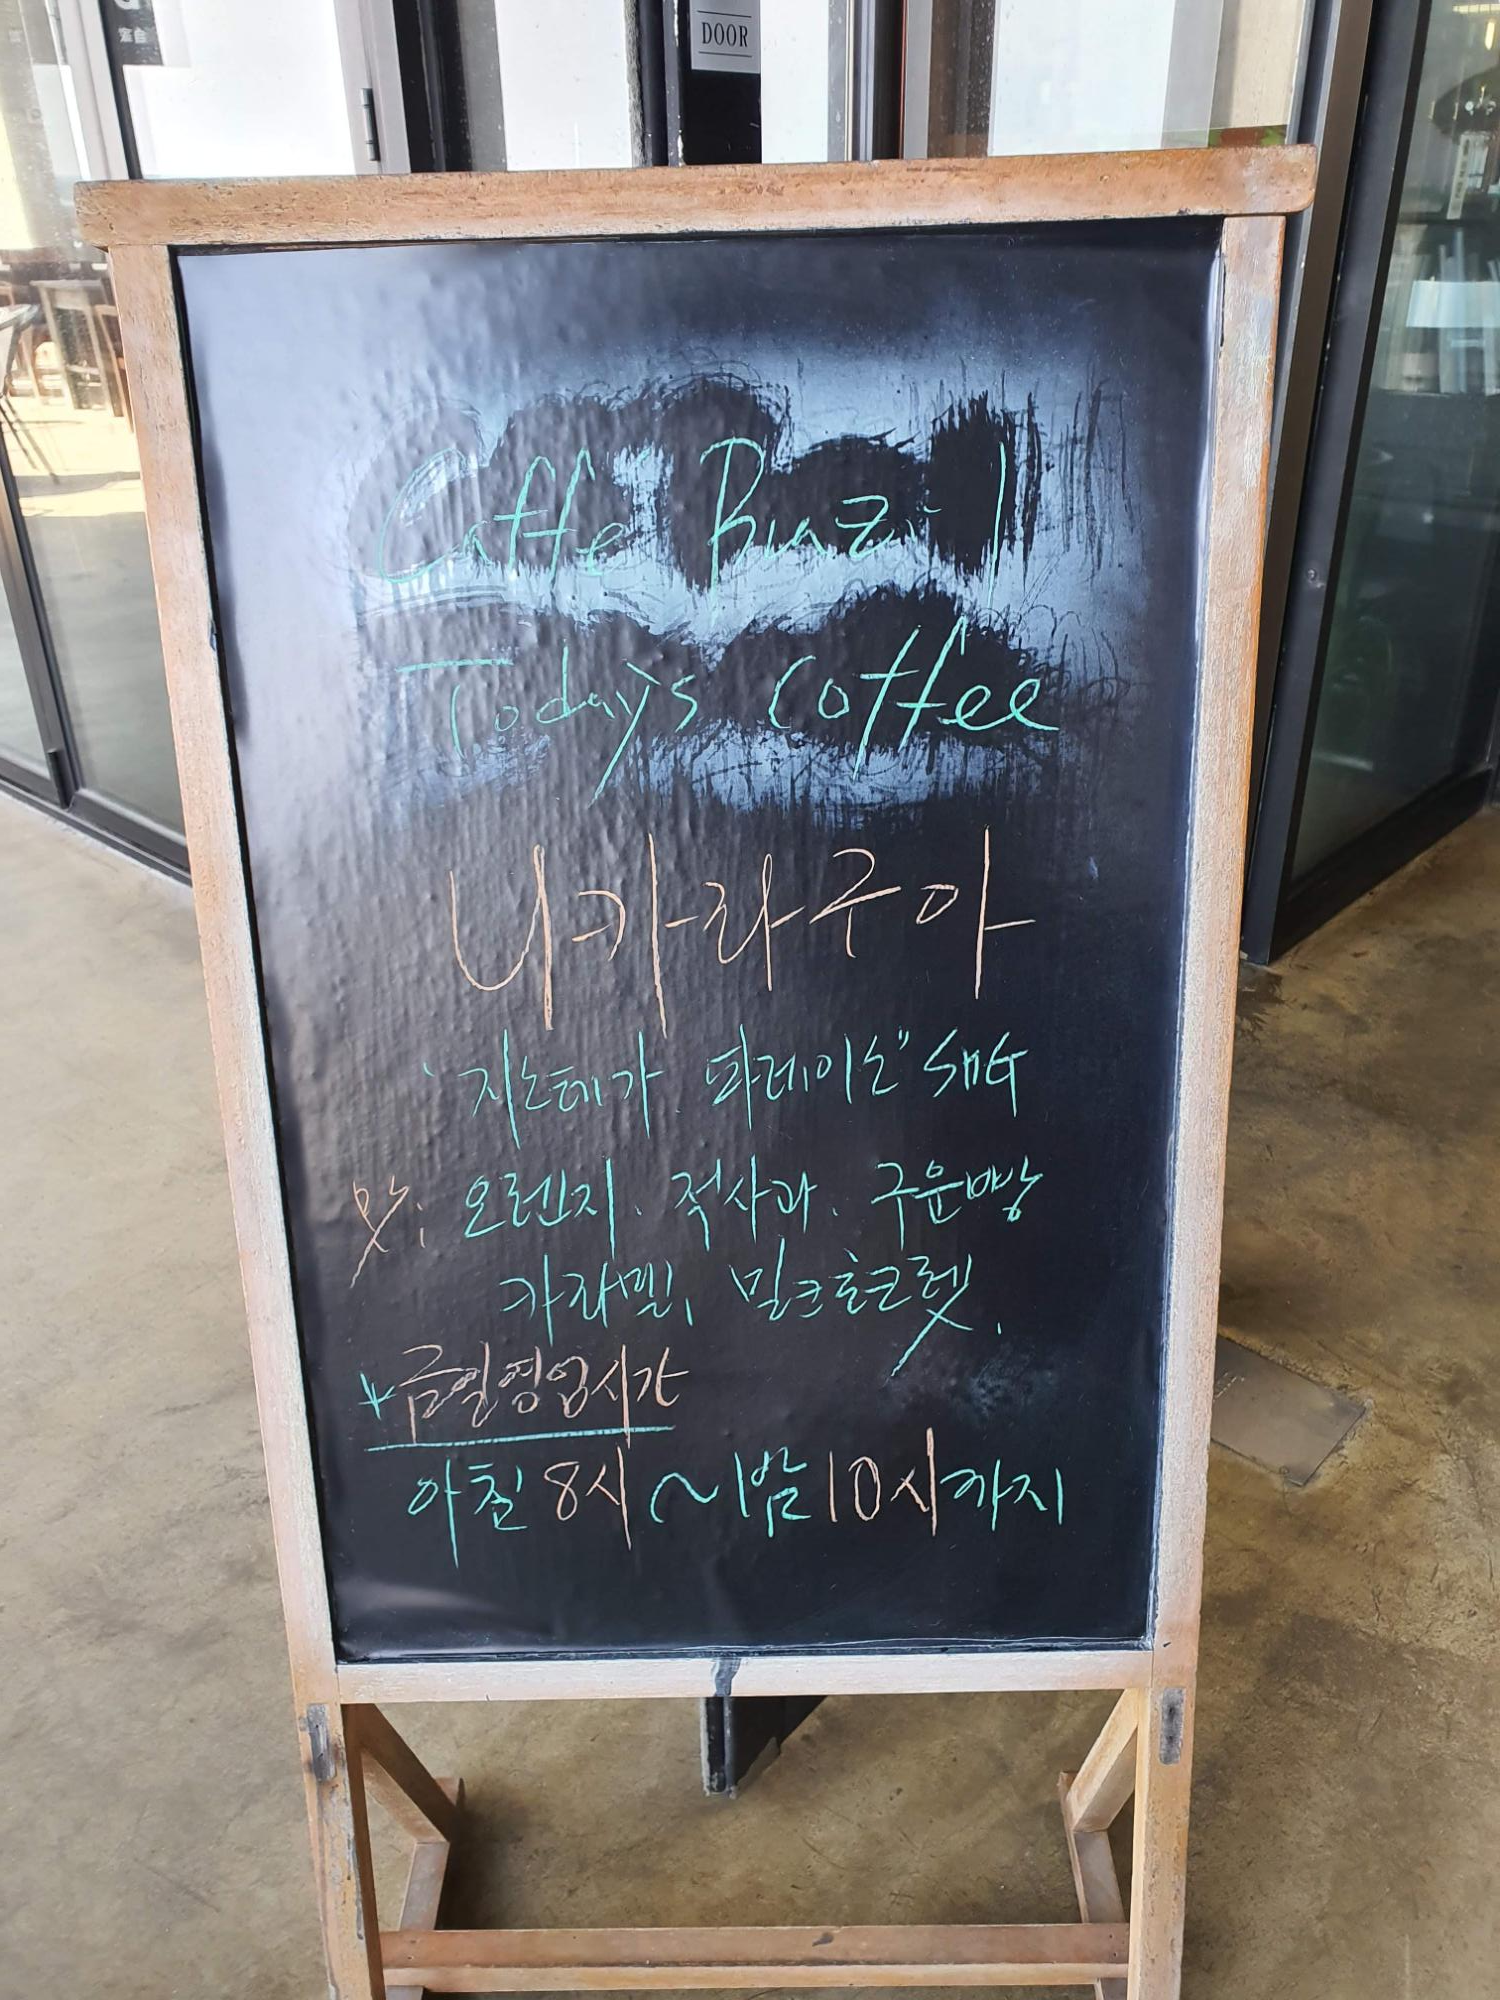 DOOR
Caffe Brazil
Today's Coffee
니카라구아
"지노테가 파레이노" SHG
맛: 오렌지. 적사과. 구운빵
카라멜, 밀크초코렛.
*금일영업시간
아침 8시~밤 10시까지